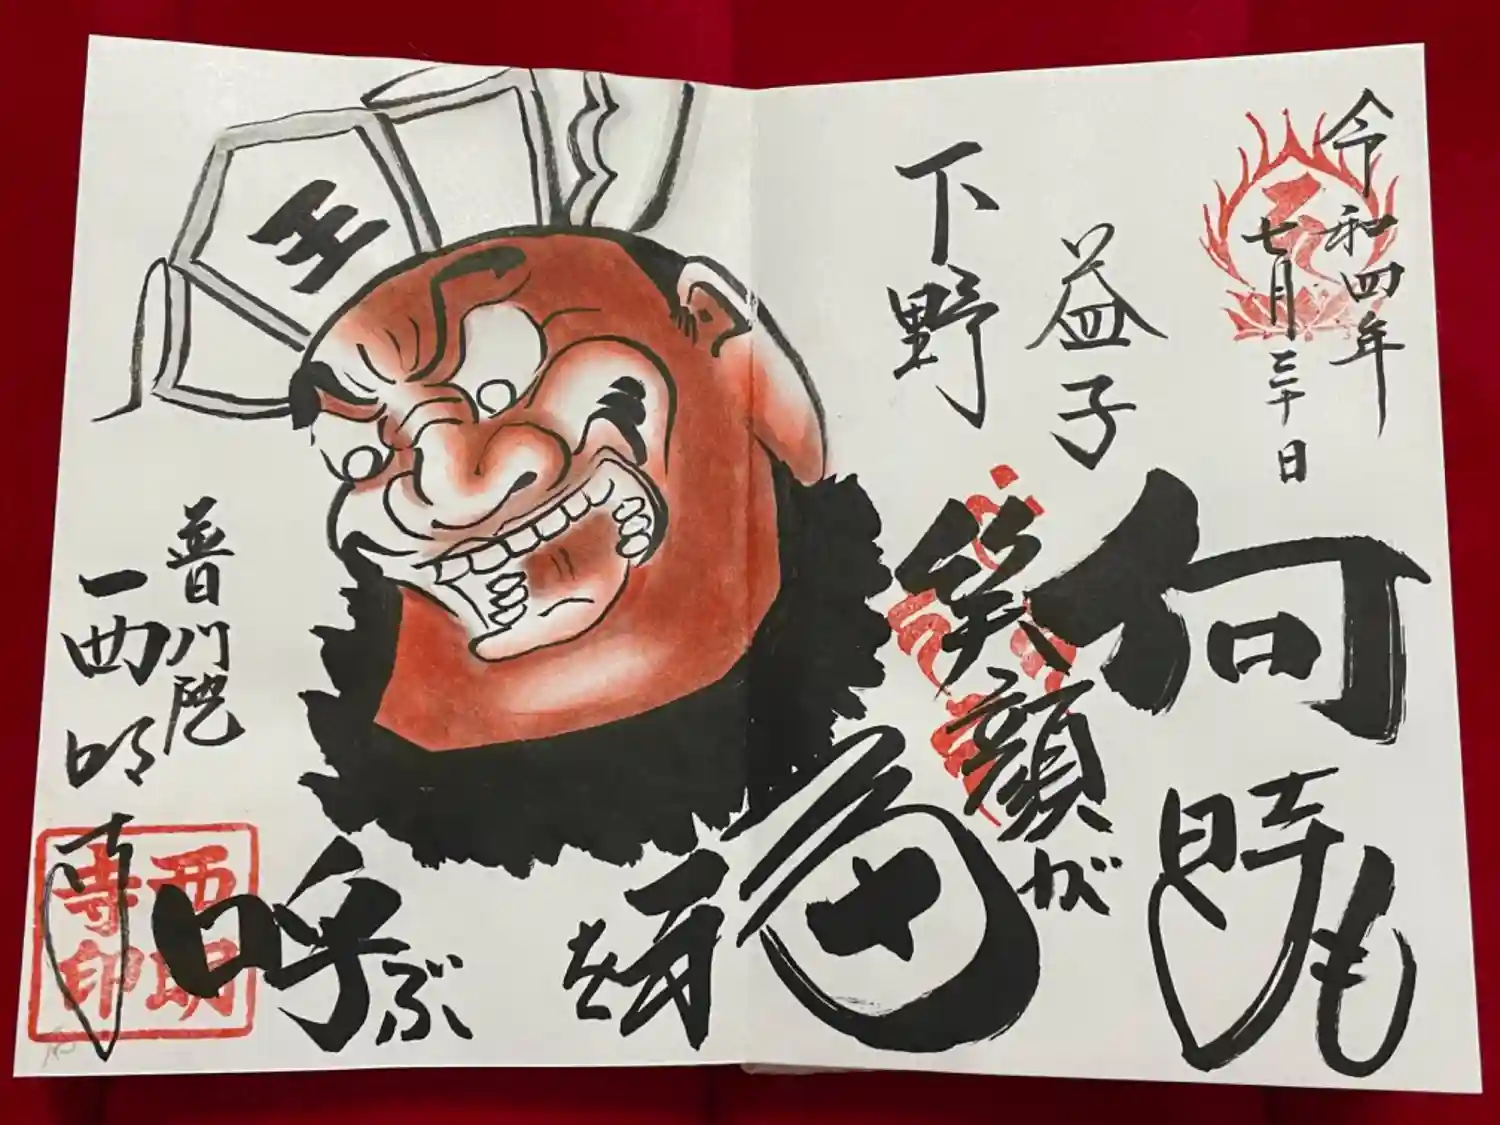 令和四年
七月三十日
下野
益子
何時も
笑顔が
福を
呼ぶ
王
普門院
西明寺
西明寺印